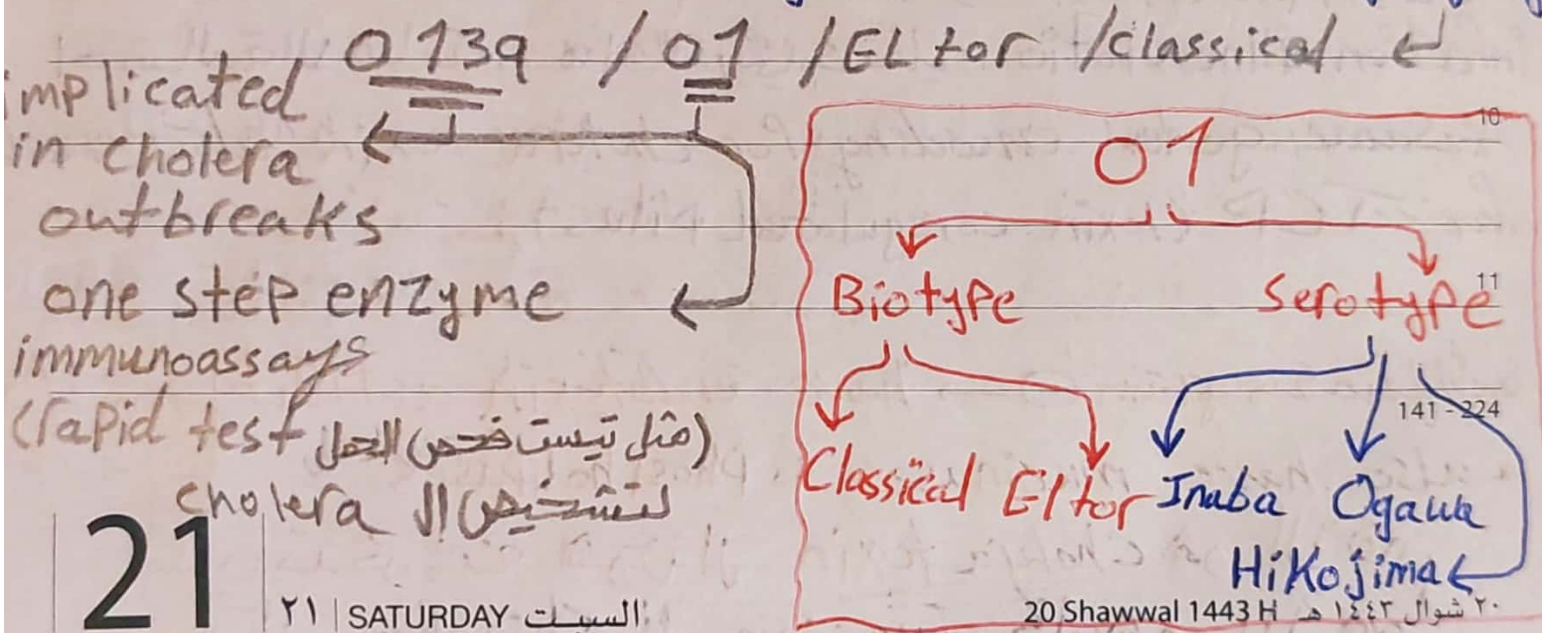 0139 / 01 / EL tor / classical
implicated
in cholera
outbreaks
one step enzyme
immunoassays
(rapid test مثل تيست فحص الحمل)
لتشخيص ال cholera
10
01
Biotype Serotype
11
141 - 224
Classical El tor Inaba Ogawa
Hikojima
21
٢١ | SATURDAY السبت
20 Shawwal 1443 H ٢٠ شوال ١٤٤٣ هـ